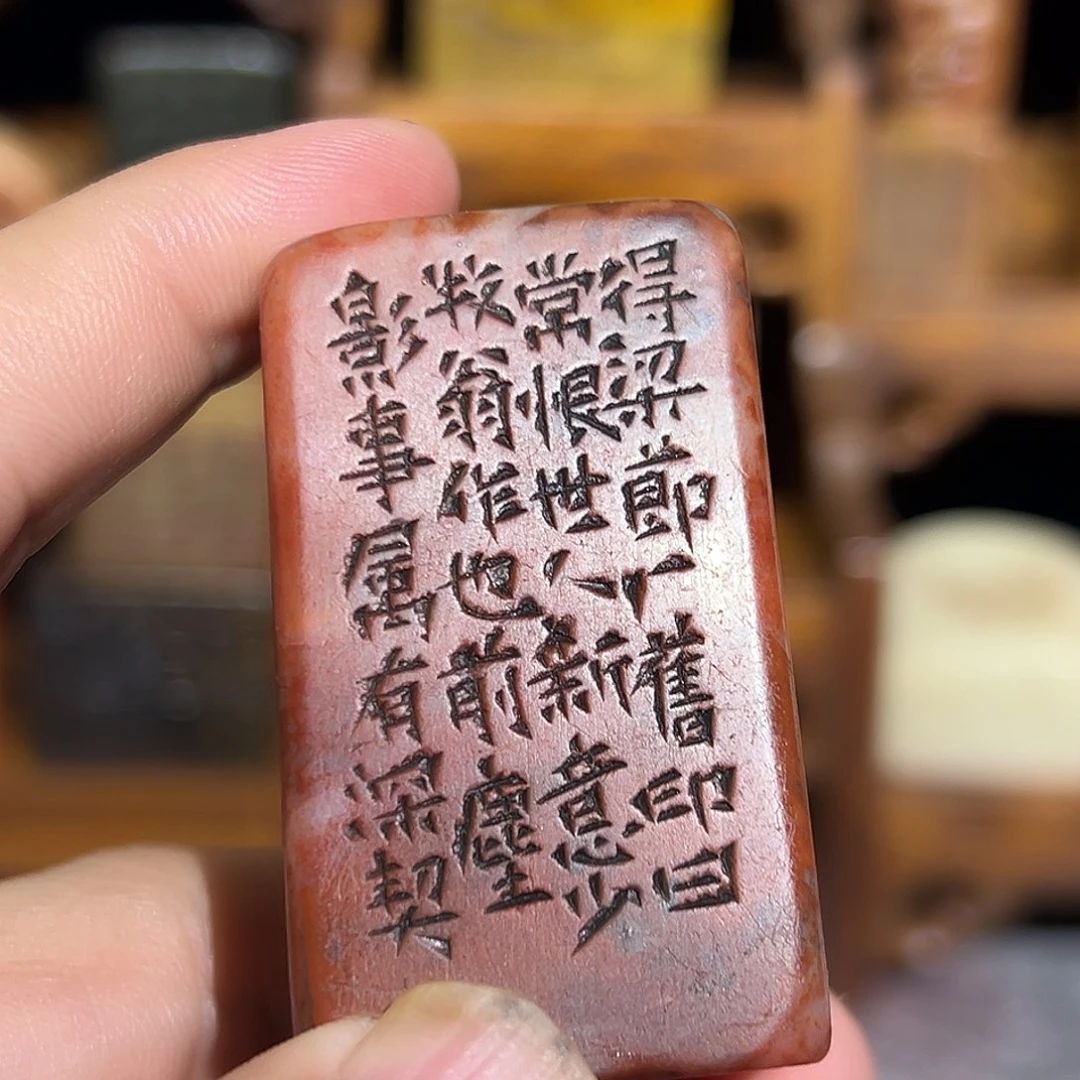 得梁節厂舊印曰
常恨世人新意少
牧翁作也前塵
影事屬有深契